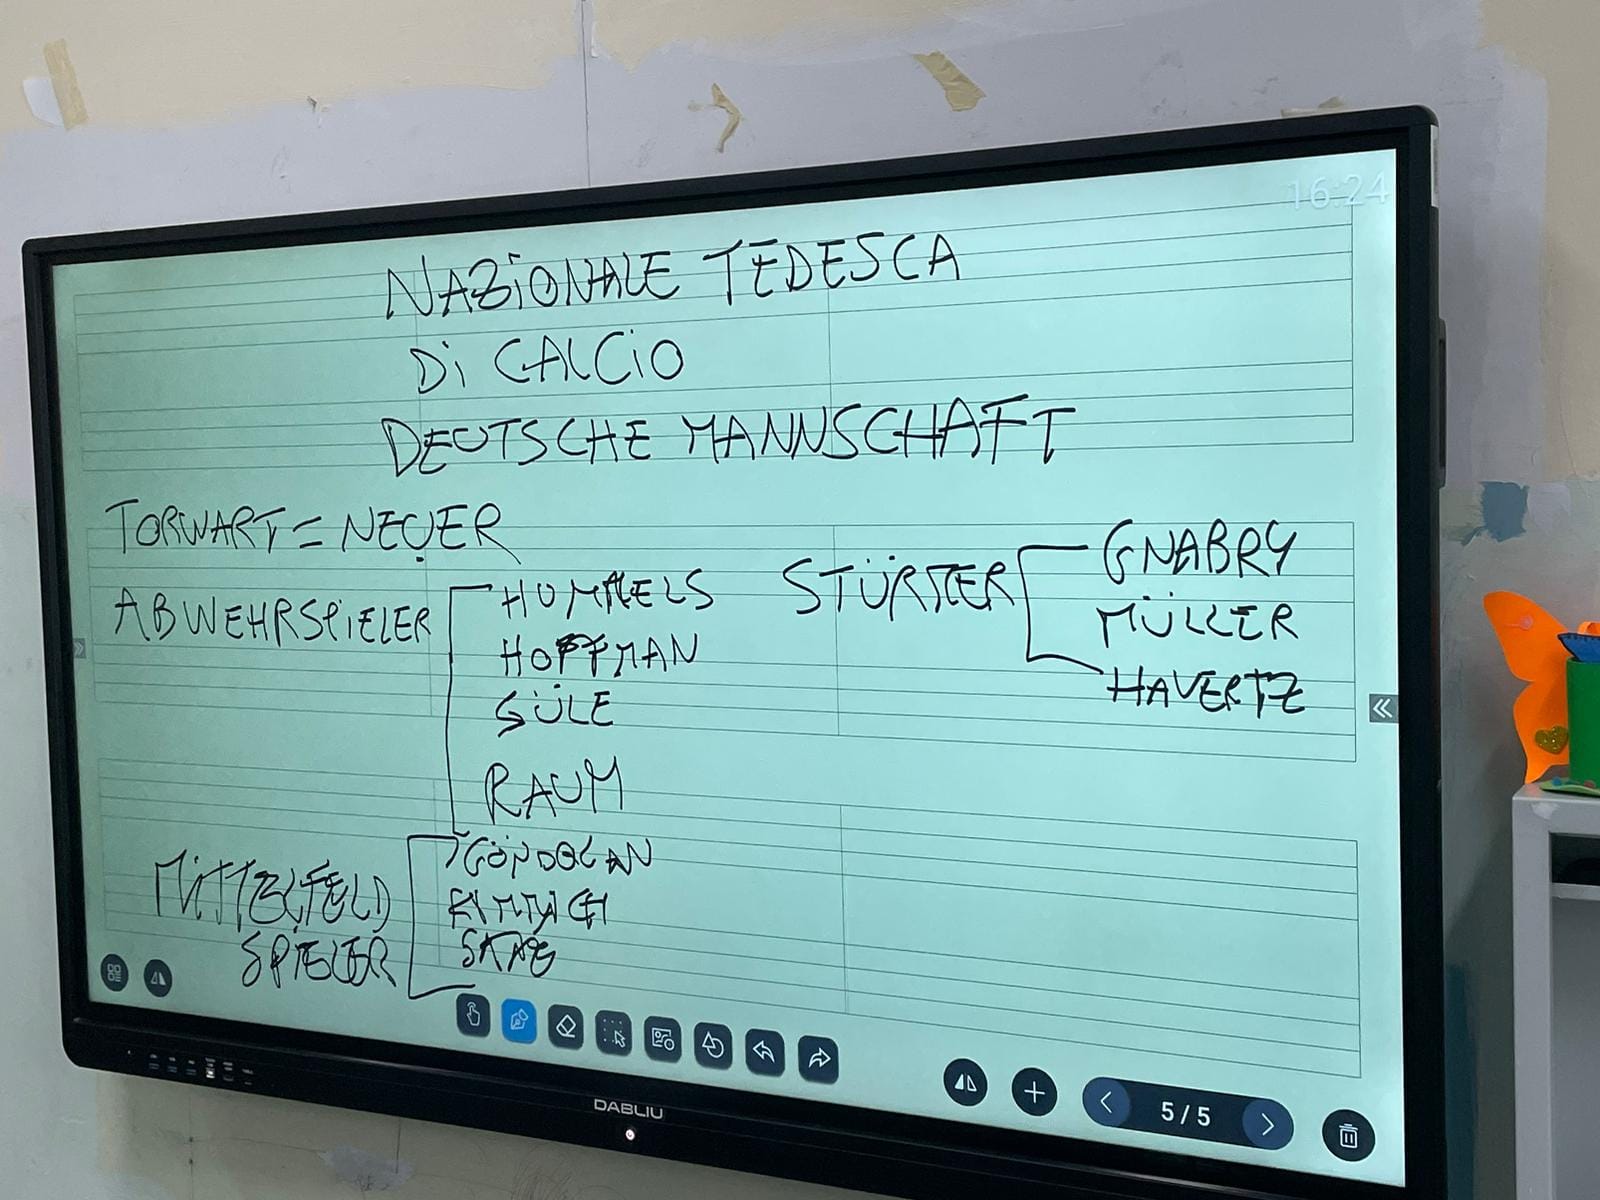 16:24
NAZIONALE TEDESCA
DI CALCIO
DEUTSCHE MANNSCHAFT
TORWART = NEUER
ABWEHRSPIELER
HUMMELS
HOFFMAN
SÜLE
RAUM
MITTELFELD
SPIELER
GÖNDOGAN
STÜRMER
GNABRY
MÜLLER
HAVERTZ
5/5
DABLIU